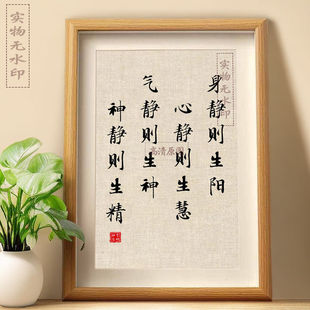 实物无水印
实物无水印
身静则生阳
心静则生慧
气静则生神
神静则生精
高清原图